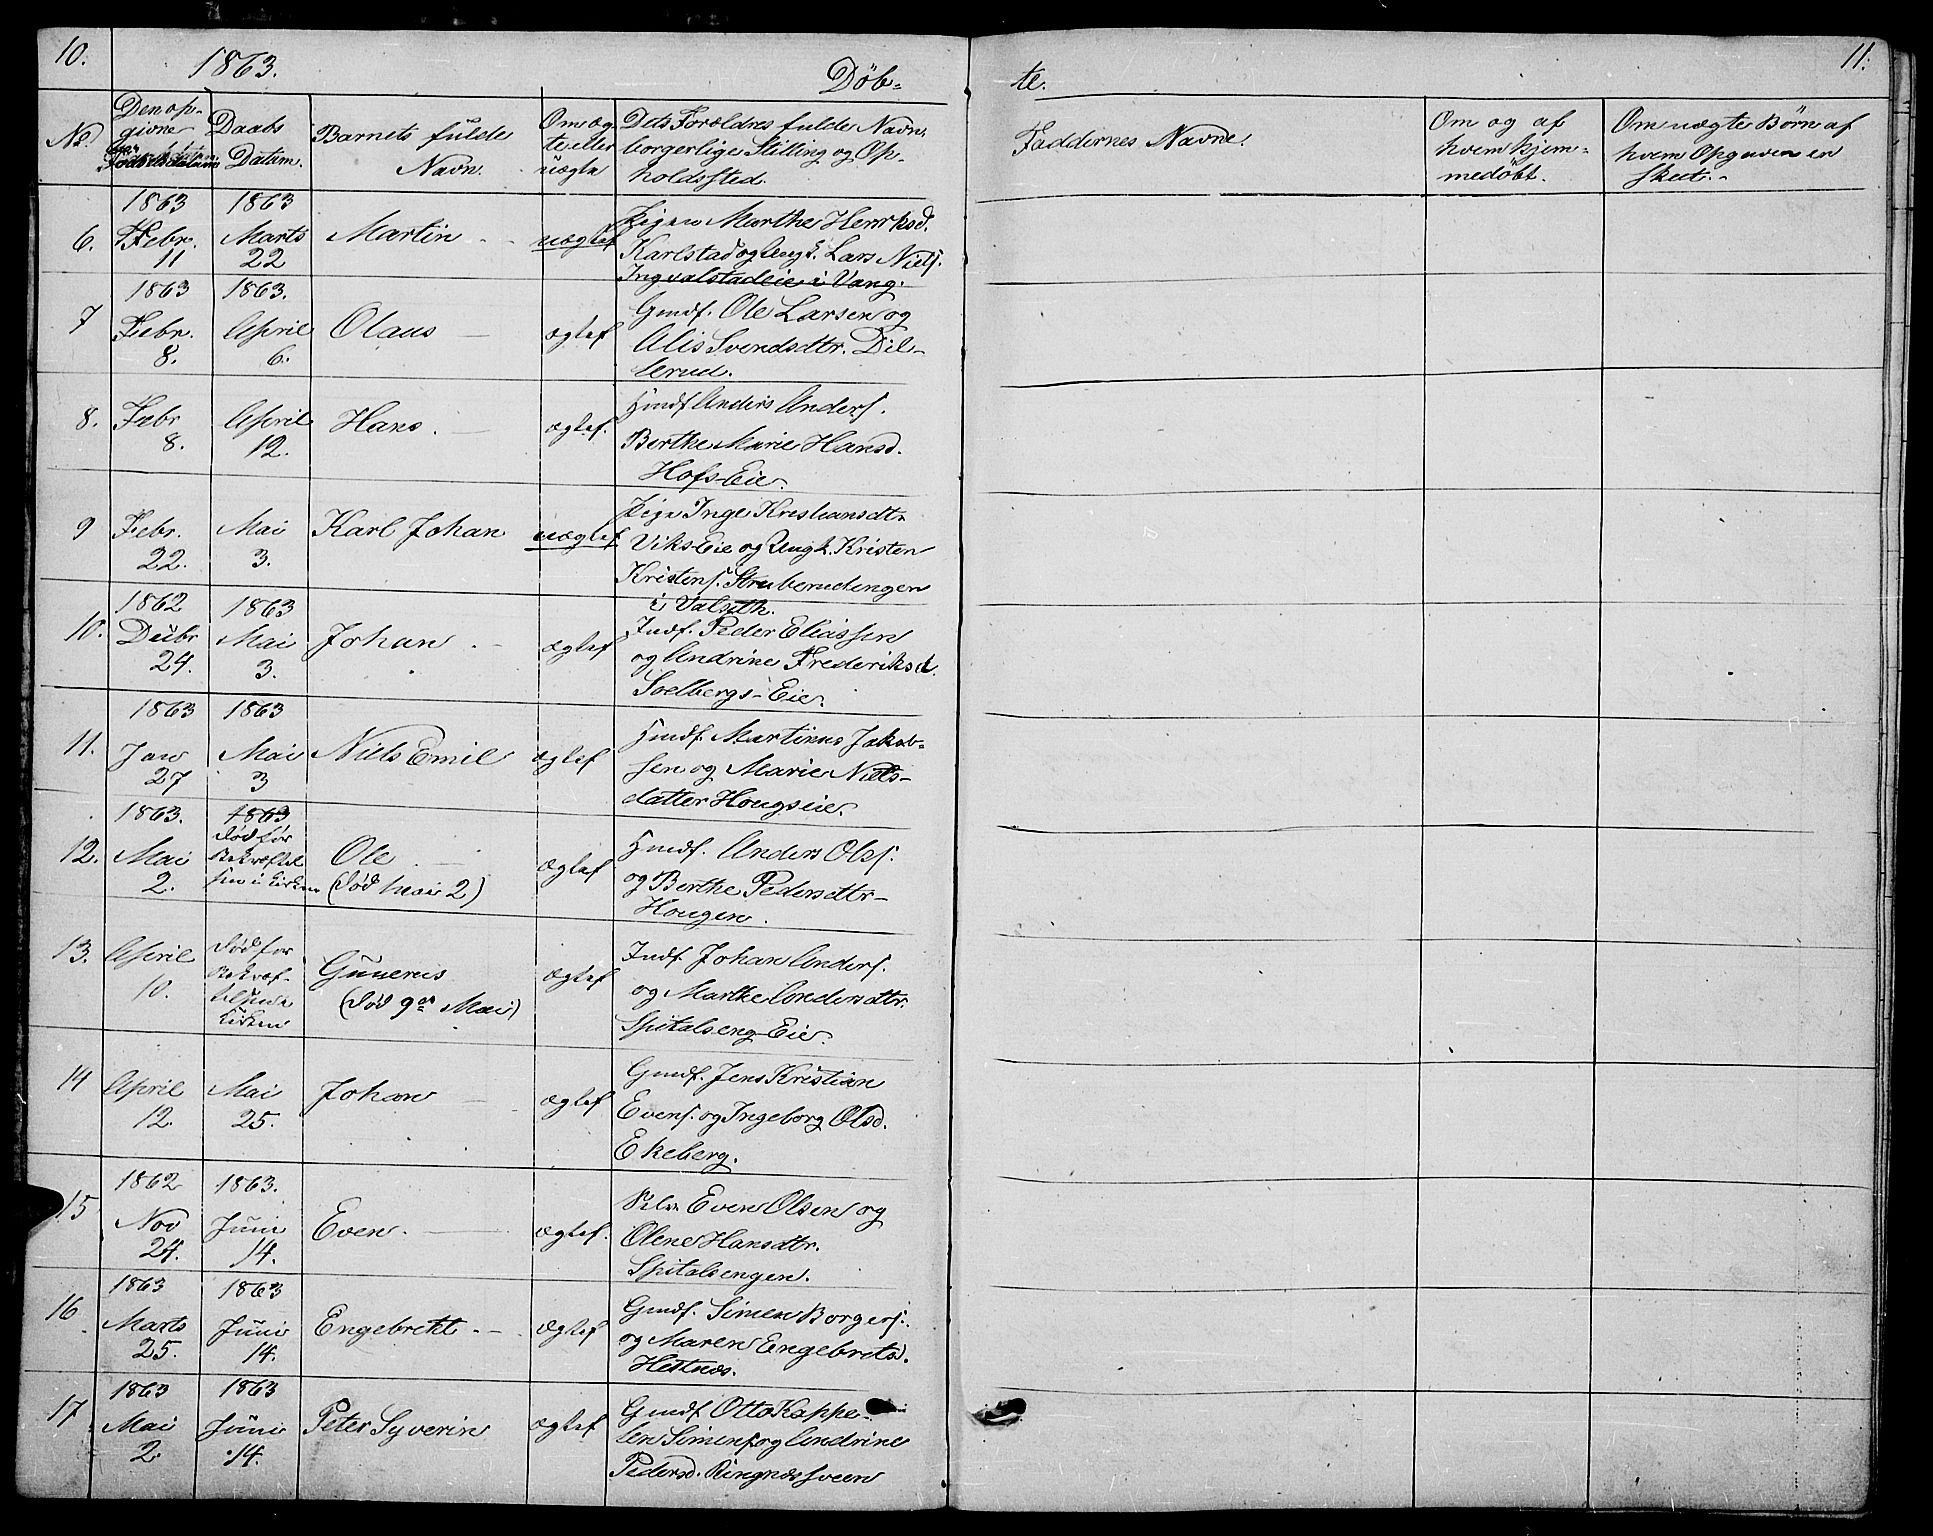 10.
1863.
Döb-
te.
11.
No.
Den op-
givne
Fødselsdatum
Daabs
Datum.
Barnets fulde
Navn.
Om æg-
te eller
uægte
Dets Forældres fulde Navn,
borgerlige Stilling og Op-
holdssted.
Faddernes Navne.
Om og af
hvem hjem-
medöbt.
Om uægte Börn af
hvem Opgaven er
skeet.
6.
1863
Febr.
11
1863
Marts
22
Martin
uægtef
Pigen Marthe Henriksd.
Karlstad og Ungk. Lars Niels.
Ingvalstadeie i Vang.
7
1863
Febr.
8.
1863.
April
6.
Olaus
ægtef
Gmdf. Ole Larsen og
Alis Svendsdtr. Dil-
lerud.
8.
Febr
8.
April
12.
Hans.
ægtef.
Hmdf Anders Anders.
Berthe Marie Hansd.
Hofs-Eie.
9
Febr.
22.
Mai
3.
Karl Johan
uægtef
Pige Inge Kristiansdtr
Viks-Eie og Ungk. Kristen
Kristens. Struberudengen
i Valseth.
10.
1862
Decbr
24.
1863
Mai
3.
Johan
ægtef
Indf. Peder Eliassen
og Andrine Frederiksd.
Soelbergs-Eie.
11.
1863
Jan
27
1863
Mai
3
Niels Emil
ægtef
Hmdf. Martinus Jakob-
sen og Marie Niels-
datter Hougseie.
12.
1863.
Mai
2.
1863
död för
Bekræftel
sen i Kirken
Ole
(död Mai 2)
ægtef
Hmdf. Anders Ols.
og Berthe Pedersdtr-
Hougen.
13.
April
10.
död for
Bekræf-
telsen i
Kirken
Gunerius
(död 9de Mai)
ægtef
Indf. Johan Anders.
og Marthe Andersdtr.
Spitalseng-Eie.
14
April
12.
Mai
25.
Johan
ægtef
Gmdf. Jens Kristian
Evens. og Ingeborg Olsd.
Ekeberg.
15
1862
Nov
24.
1863.
Juni
14.
Even.
ægtef.
Even Olsen og
Olene Hansdtr.
Spitalsengen.
16
1863
Marts
25.
1863
Juni
14.
Engebrekt.
ægtef
Gmdf. Simen Borgers.
og Maren Engebretsd.
Hettnes.
17
1863
Mai
2
1863
Juni
14.
Peter Syverin
ægtef
Gmdf Otto Kappe-
len Simens og Andrine
Pedersd. Ringnæssveen